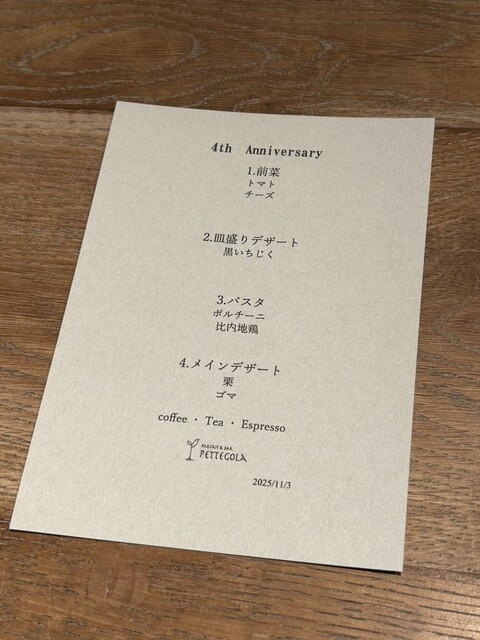 4th Anniversary
1.前菜
トマト
チーズ
2.皿盛りデザート
黒いちじく
3.パスタ
ポルチーニ
比内地鶏
4.メインデザート
栗
ゴマ
coffee ・ Tea ・ Espresso
PARFAIT & BAR
PETTEGOLA
2025/11/3